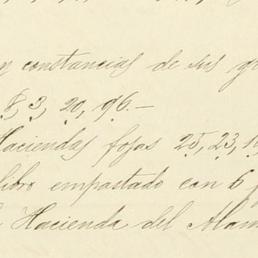 y constancias de sus
8, 3, 20, 96.—
Haciendas fojas 25, 23, 1
libro empastado con 6
Hacienda del Alam